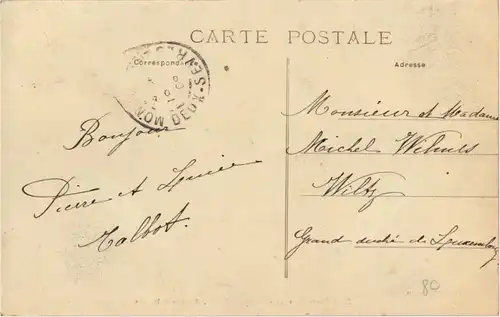 CARTE POSTALE
Correspondance
Adresse
DEUX-SEVRES
Bonjour
Pierre et Louise
Talbot.
Monsieur et Madame
Michel
Wiltz
Grand duché de Luxembourg
80